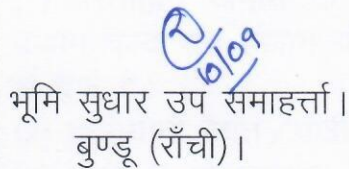 10/09
भूमि सुधार उप समाहर्त्ता।
बुण्डू (राँची)।